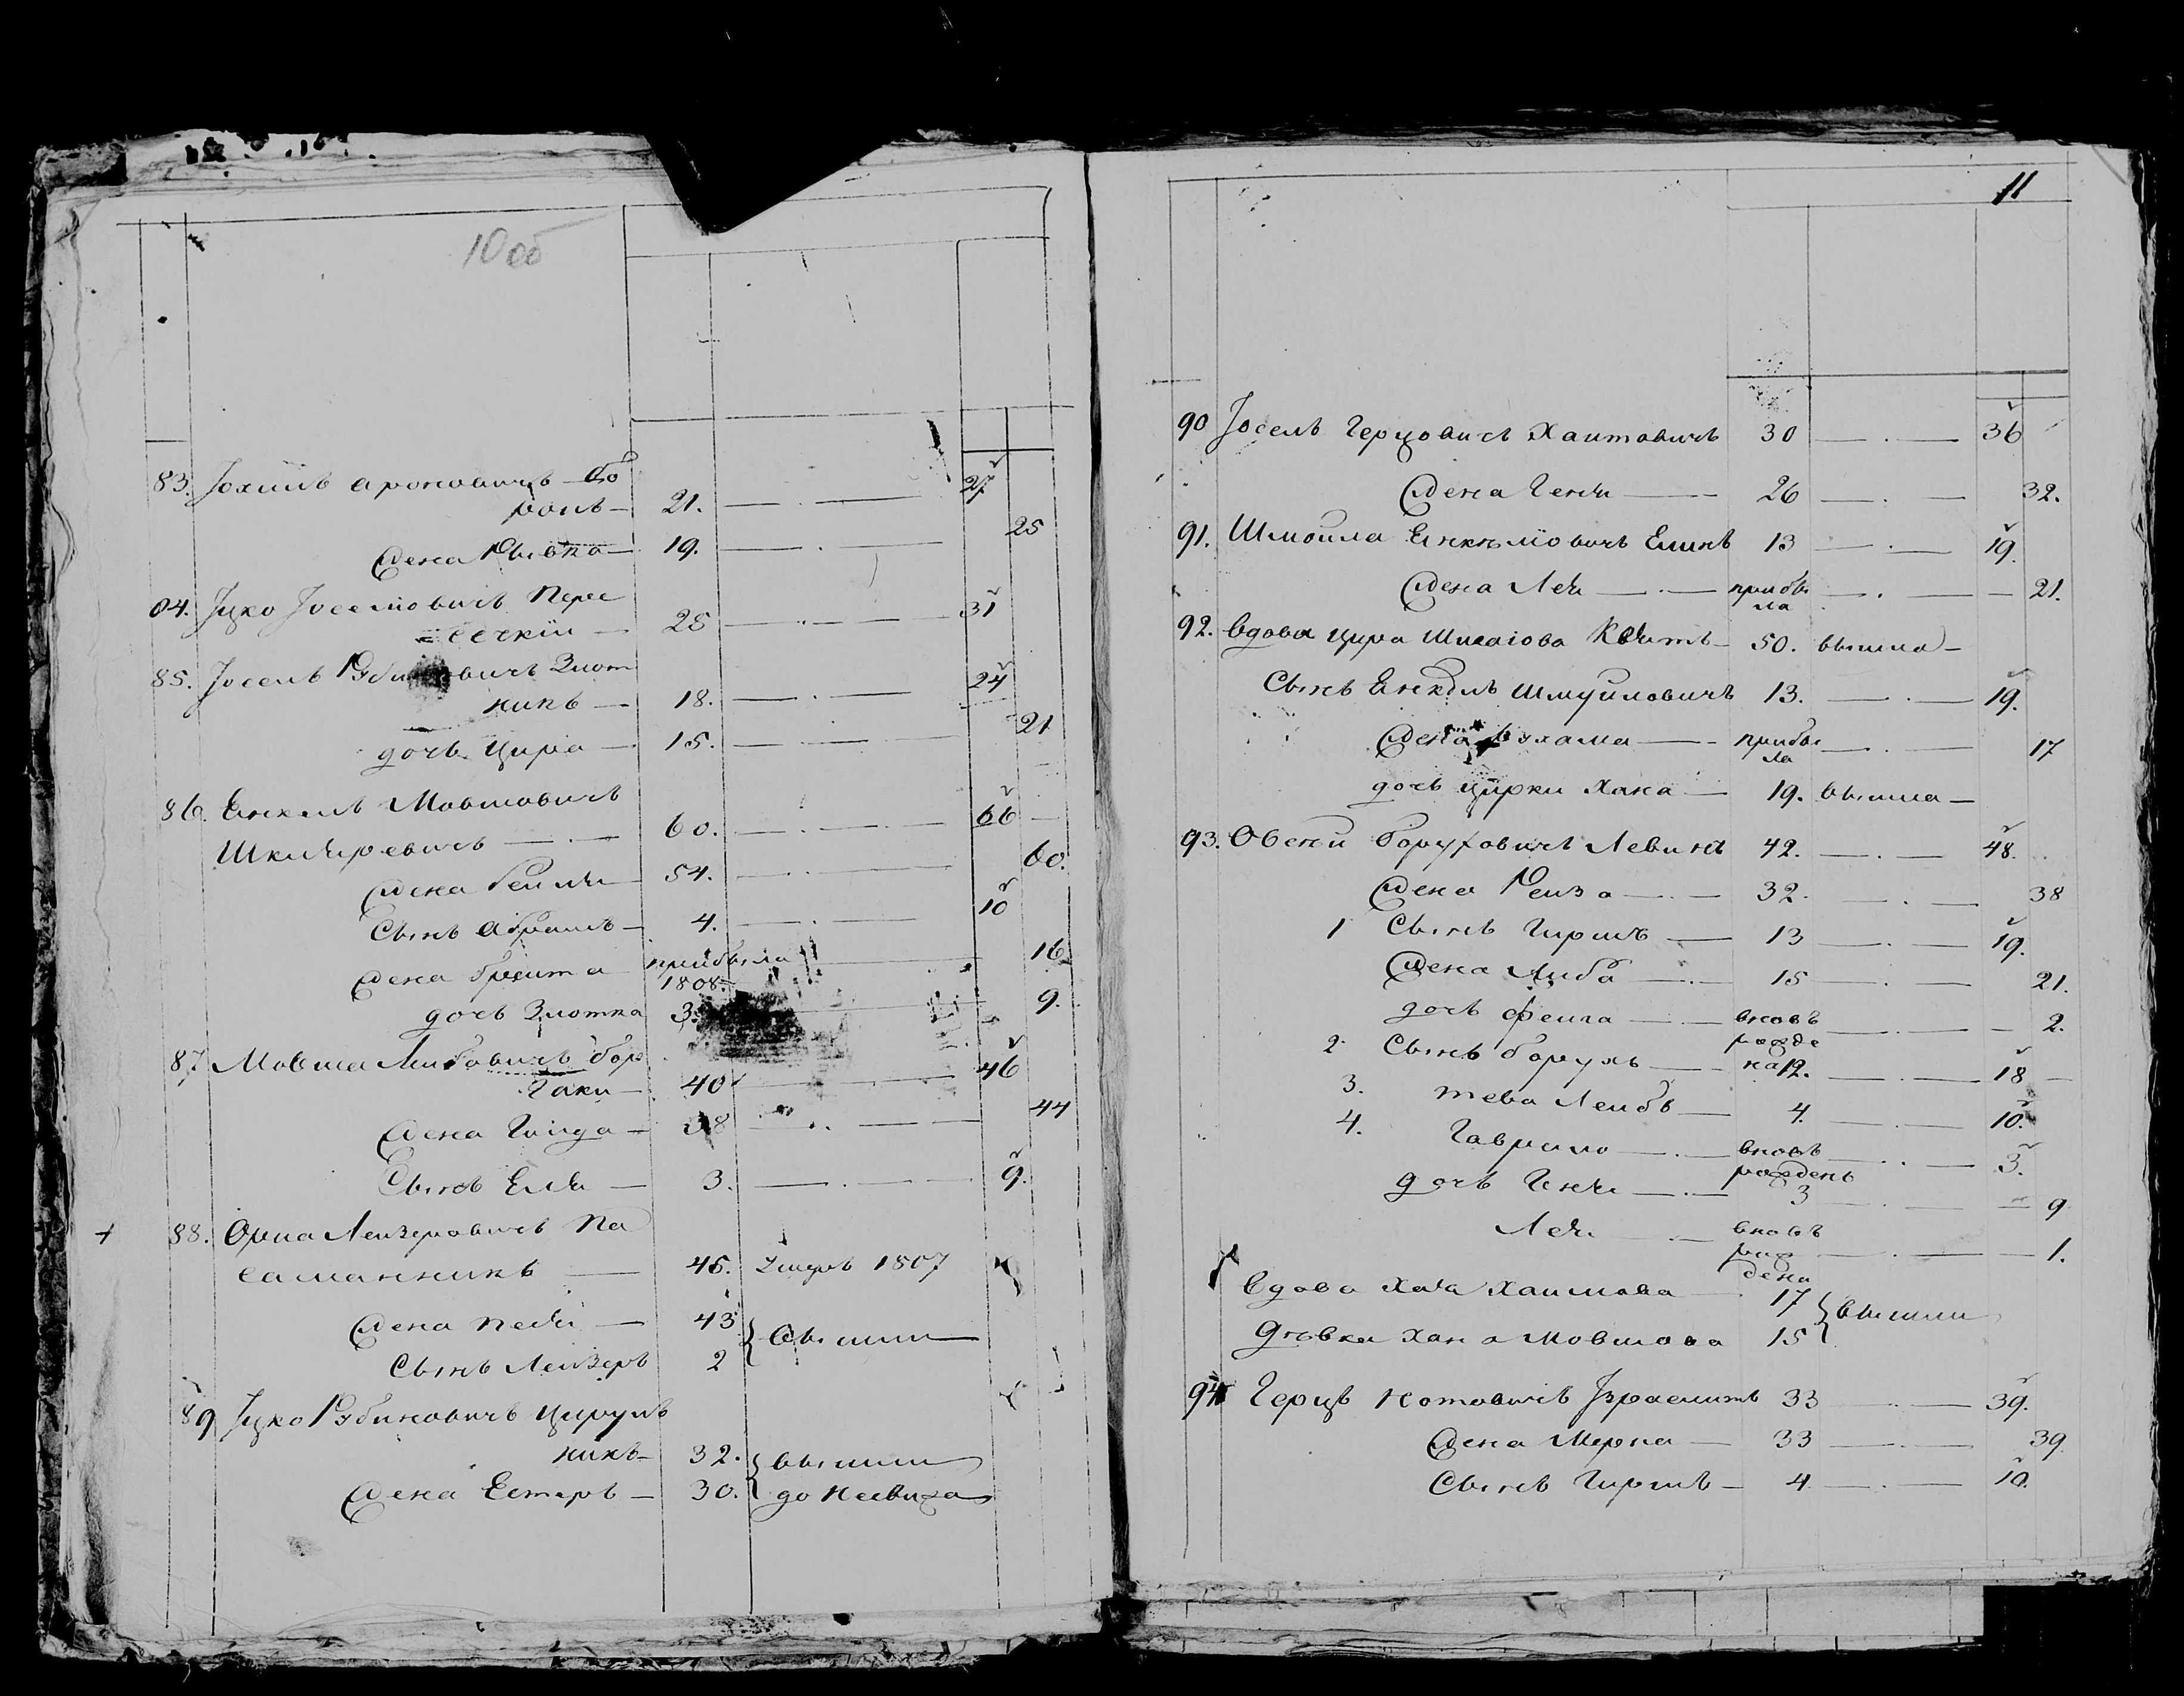 10 об
83. Іохиль Ароновичъ Бо
роль — 21. — 27
жена Рывка — 19. — 25
84. Іцко Іоселіовичъ Пере
сечкіи — 25 — 31
85. Іосель Рубиновичъ Злот
никъ — 18. — 24
дочь Цира — 15. — 21
86. Енкель Мовшовичъ
Шкляревичъ — 60. — 66
жена Геиля — 54. — 60.
Сынъ Абрамъ — 4. — 10
жена Броита прибыла 1808. — 16
дочь Злотка 3. — 9.
87 Мовша Леибовичъ Бор
гаки — 40 — 46
жена Голда — 38 — 44
Сынъ Еля — 3. — 9.
+ 88. Орка Леизеровичъ Па
саманникъ — 45. умеръ 1807
жена Песя — 43
Сынъ Леизеръ 2 } вышли
89 Іцко Рубиновичъ Цируль
никъ — 32. } вышли
жена Естеръ — 30. } до Несвижа
11
90 Іосель Герцовичъ Хаитовичъ 30 — 36
жена Геня — 26 — 32.
91. Шмоила Енкеліовичъ Елинъ 13 — 19.
жена Лея — прибы
ла — 21.
92. Вдова Цира Шмаіова Квитъ — 50. вышла —
Сынъ Енкель Шмуиловичъ 13. — 19.
жена Нухама — прибы
ла — 17
дочь Цирки Хана — 19. вышла —
93. Овсей Боруховичъ Левинъ 42. — 48.
жена Реиза — 32. — 38
1 Сынъ Гиршъ — 13 — 19.
жена Либа — 15 — 21.
дочь Феига — вновь
рожде
на — 2.
2 Сынъ Борухъ — 12. — 18
3. Тева Леибъ — 4. — 10.
4. Гаврило — вновь
рожденъ — 3.
дочь Геня — 3 — 9
Лея — вновь
рож
дена — 1.
Вдова Хая Хаимова — 17
Дѣвка Хана Мовшова 15 } вышли
94 Герцъ Нотовичъ Ізраелитъ 33 — 39.
жена Мерка — 33 — 39
Сынъ Гиршъ — 4 — 10.